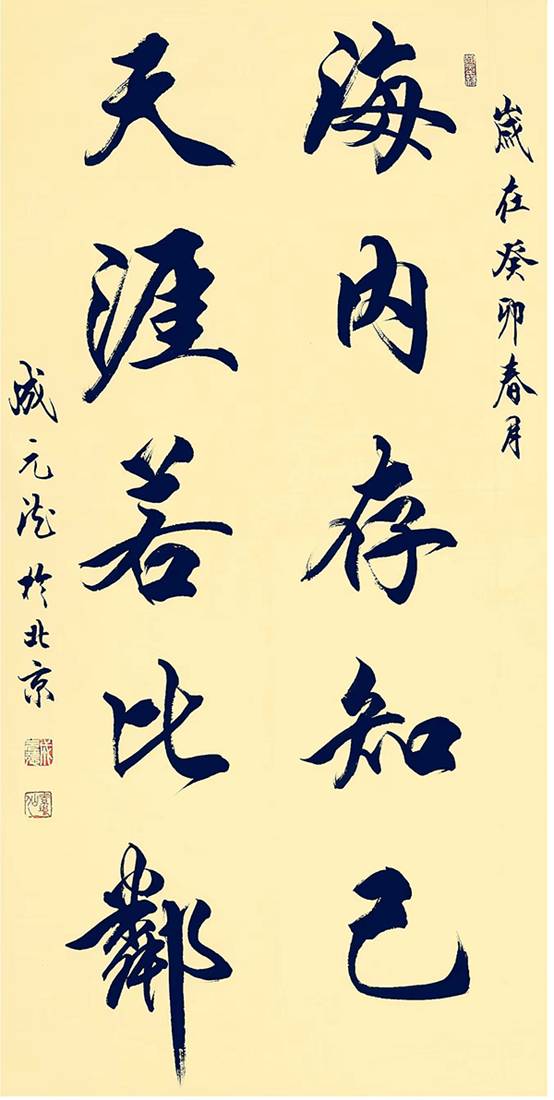 歲在癸卯春月
海内存知己
天涯若比鄰
成元浩於北京